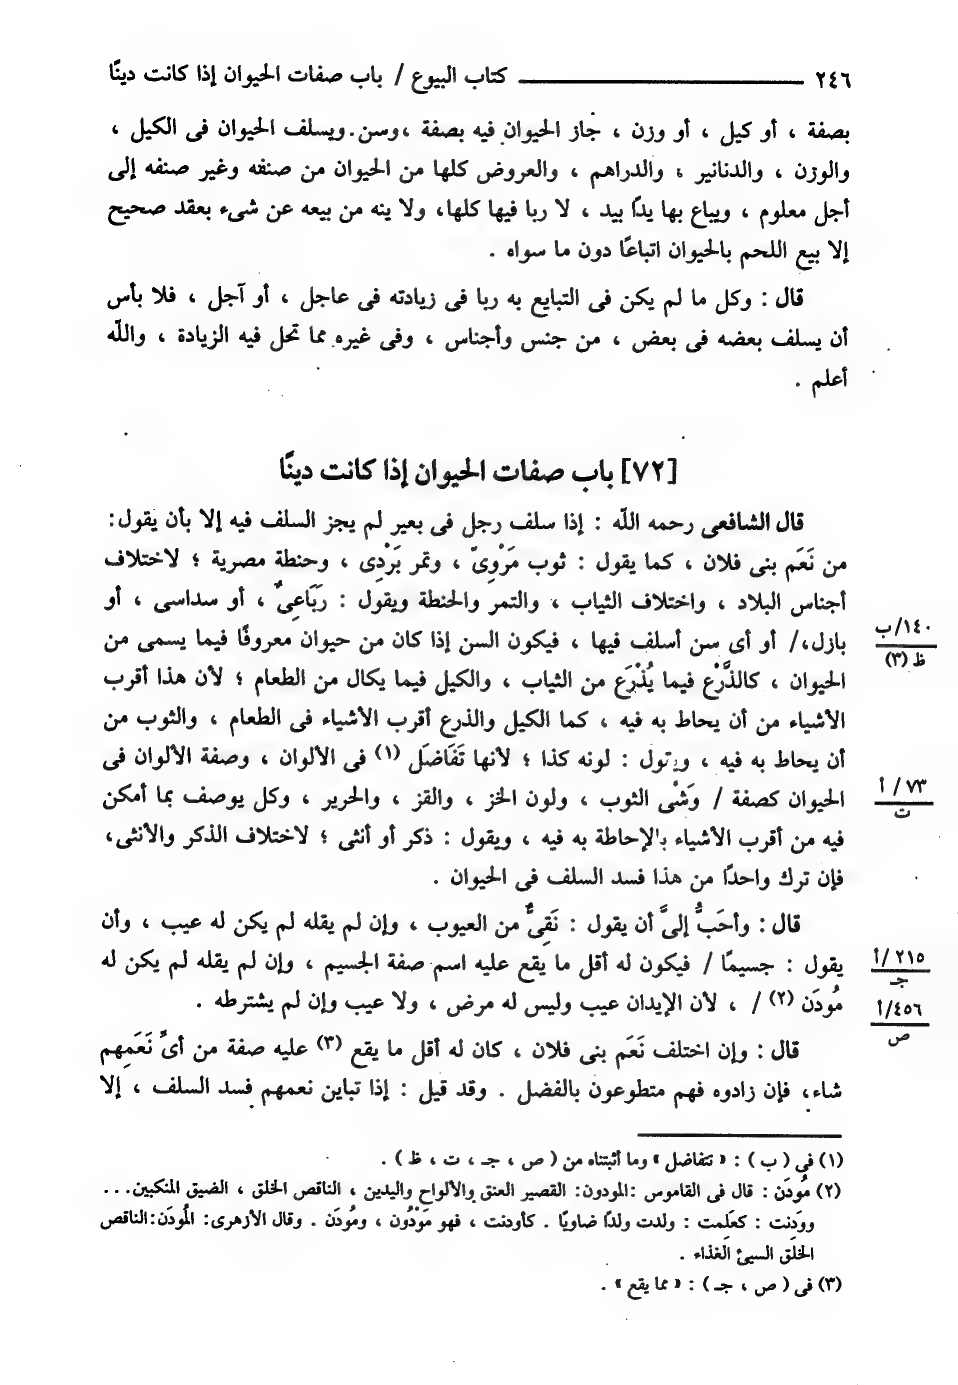 ٢٤٦ كتاب البيوع / باب صفات الحيوان إذا كانت دينًا
بصفة ، أو كيل ، أو وزن ، جاز الحيوان فيه بصفة ، وسن . ويسلف الحيوان فى الكيل ،
والوزن ، والدنانير ، والدراهم ، والعروض كلها من الحيوان من صنفه وغير صنفه إلى
أجل معلوم ، ويباع بها يدًا بيد ، لا ربا فيها كلها، ولا ينه من بيعه عن شىء بعقد صحيح
إلا بيع اللحم بالحيوان اتباعًا دون ما سواه .
قال : وكل ما لم يكن فى التبايع به ربا فى زيادته فى عاجل ، أو آجل ، فلا بأس
أن يسلف بعضه فى بعض ، من جنس وأجناس ، وفى غيره مما تحل فيه الزيادة ، والله
أعلم .
[٧٢] باب صفات الحيوان إذا كانت دينًا
قال الشافعى رحمه الله : إذا سلف رجل فى بعير لم يجز السلف فيه إلا بأن يقول:
من نَعَم بنى فلان ، كما يقول : ثوب مَرْوِىّ ، وتمر بَرْدِى ، وحنطة مصرية ؛ لاختلاف
أجناس البلاد ، واختلاف الثياب ، والتمر والحنطة ويقول : رَبَاعِىٌّ ، أو سداسى ، أو
بازل،/ أو أى سن أسلف فيها ، فيكون السن إذا كان من حيوان معروفًا فيما يسمى من
١٤٠/ب
ظ (٣)
الحيوان ، كالذَّرْع فيما يُذْرَع من الثياب ، والكيل فيما يكال من الطعام ؛ لأن هذا أقرب
الأشياء من أن يحاط به فيه ، كما الكيل والذرع أقرب الأشياء فى الطعام ، والثوب من
أن يحاط به فيه ، ويقول : لونه كذا ؛ لأنها تَفَاضَل (١) فى الألوان ، وصفة الألوان فى
الحيوان كصفة / وَشْى الثوب ، ولون الخز ، والقز ، والحرير ، وكل يوصف بما أمكن
٧٣ / أ
ت
فيه من أقرب الأشياء بالإحاطة به فيه ، ويقول : ذكر أو أنثى ؛ لاختلاف الذكر والأنثى،
فإن ترك واحدًا من هذا فسد السلف فى الحيوان .
قال : وأحَبُّ إلىَّ أن يقول : نَقِىٌّ من العيوب ، وإن لم يقله لم يكن له عيب ، وأن
يقول : جسيمًا / فيكون له أقل ما يقع عليه اسم صفة الجسيم ، وإن لم يقله لم يكن له
٢١٥ /أ
جـ
مُودَن (٢) / ، لأن الإيدان عيب وليس له مرض ، ولا عيب وإن لم يشترطه .
٤٥٦/أ
ص
قال : وإن اختلف نَعَم بنى فلان ، كان له أقل ما يقع (٣) عليه صفة من أىِّ نَعَمِهم
شاء، فإن زادوه فهم متطوعون بالفضل . وقد قيل : إذا تباين نعمهم فسد السلف ، إلا
(١) فى ( ب ) : « تتفاضل » وما أثبتناه من ( ص ، جـ ، ت ، ظ ) .
(٢) مُودَن : قال فى القاموس :المودون: القصير العنق والألواح واليدين ، الناقص الخلق ، الضيق المنكبين...
وودَنت : كعلَمت : ولدت ولدًا ضاويًا . كأودنت ، فهو مَوْدُون ، ومُودَن . وقال الأزهرى: المُودَن:الناقص
الخلق السيئ الغذاء .
(٣) فى ( ص ، جـ ) : « مما يقع » .